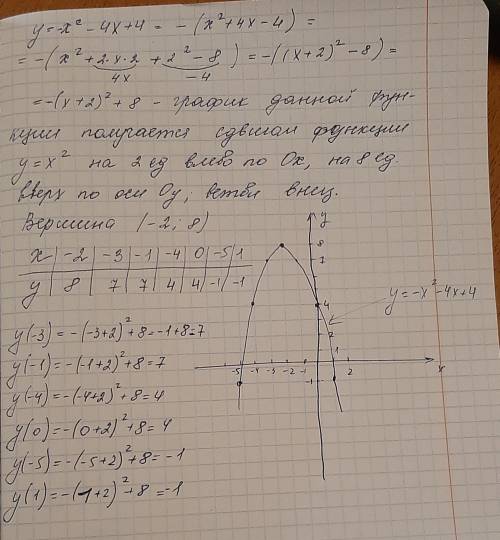 y=-x²-4x+4 = -(x²+4x-4) =
= -(x²+2·x·2+2²-8) = -((x+2)²-8) =
4x -4
= -(x+2)²+8 - график данной фун-
кции получается сдвигом функции
y=x² на 2 ед влево по Ox, на 8 ед.
вверх по оси Oy, ветви вниз.
Вершина (-2; 8)
x | -2 | -3 | -1 | -4 | 0 | -5 | 1
y | 8 | 7 | 7 | 4 | 4 | -1 | -1
y(-3) = -(-3+2)²+8 = -1+8=7
y(-1) = -(-1+2)²+8=7
y(-4) = -(-4+2)²+8=4
y(0) = -(0+2)²+8=4
y(-5) = -(-5+2)²+8= -1
y(1) = -(1+2)²+8 = -1
y
8
7
4
y=-x²-4x+4
2
1
-5 -4 -3 -2 -1 2 x
-1